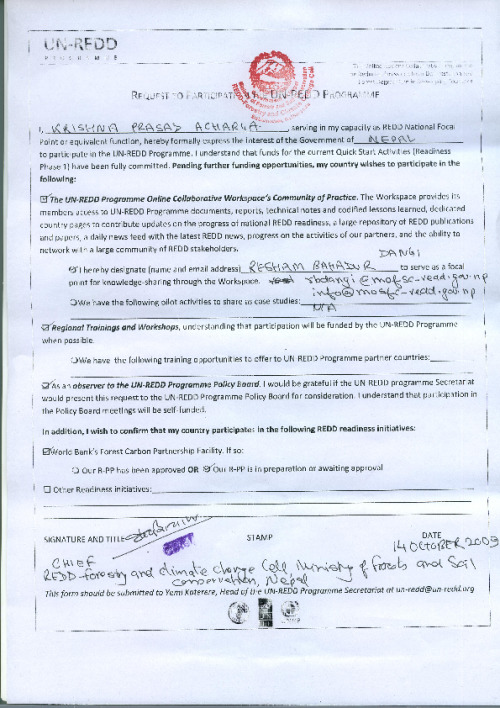 UN-REDD
PROGRAMME
REQUEST TO PARTICIPATE UN-REDD PROGRAMME
I, KRISHNA PRASAD ACHARYA, serving in my capacity as REDD National Focal
Point or equivalent function, hereby formally express the interest of the Government of NEPAL
to participate in the UN-REDD Programme. I understand that funds for the current Quick Start Activities (Readiness
Phase 1) have been fully committed. Pending further funding opportunities, my country wishes to participate in the
following:
☑ The UN-REDD Programme Online Collaborative Workspace's Community of Practice. The Workspace provides its
members access to UN-REDD Programme documents, reports, technical notes and codified lessons learned, dedicated
country pages to contribute updates on the progress of national REDD readiness, a large repository of REDD publications
and papers, a daily news feed with the latest REDD news, progress on the activities of our partners, and the ability to
network with a large community of REDD stakeholders.
DANGI
☑ I hereby designate (name and email address) RESHAM BAHADUR to serve as a focal
point for knowledge-sharing through the Workspace. rbdangi@mofsc-redd.gov.np
info@mofsc-redd.gov.np
☐ We have the following pilot activities to share as case studies: N/A
☑ Regional Trainings and Workshops, understanding that participation will be funded by the UN-REDD Programme
when possible.
☐ We have the following training opportunities to offer to UN-REDD Programme partner countries:
☑ As an observer to the UN-REDD Programme Policy Board. I would be grateful if the UN REDD programme Secretariat
would present this request to the UN-REDD Programme Policy Board for consideration. I understand that participation in
the Policy Board meetings will be self-funded.
In addition, I wish to confirm that my country participates in the following REDD readiness initiatives:
☑ World Bank's Forest Carbon Partnership Facility. If so:
☐ Our R-PP has been approved OR ☑ Our R-PP is in preparation or awaiting approval
☐ Other Readiness initiatives:
SIGNATURE AND TITLE STAMP DATE
14 OCTOBER 2009
CHIEF
REDD-forestry and climate change Cell, Ministry of Forests and Soil
Conservation, Nepal
This form should be submitted to Yemi Katerere, Head of the UN-REDD Programme Secretariat at un-redd@un-redd.org